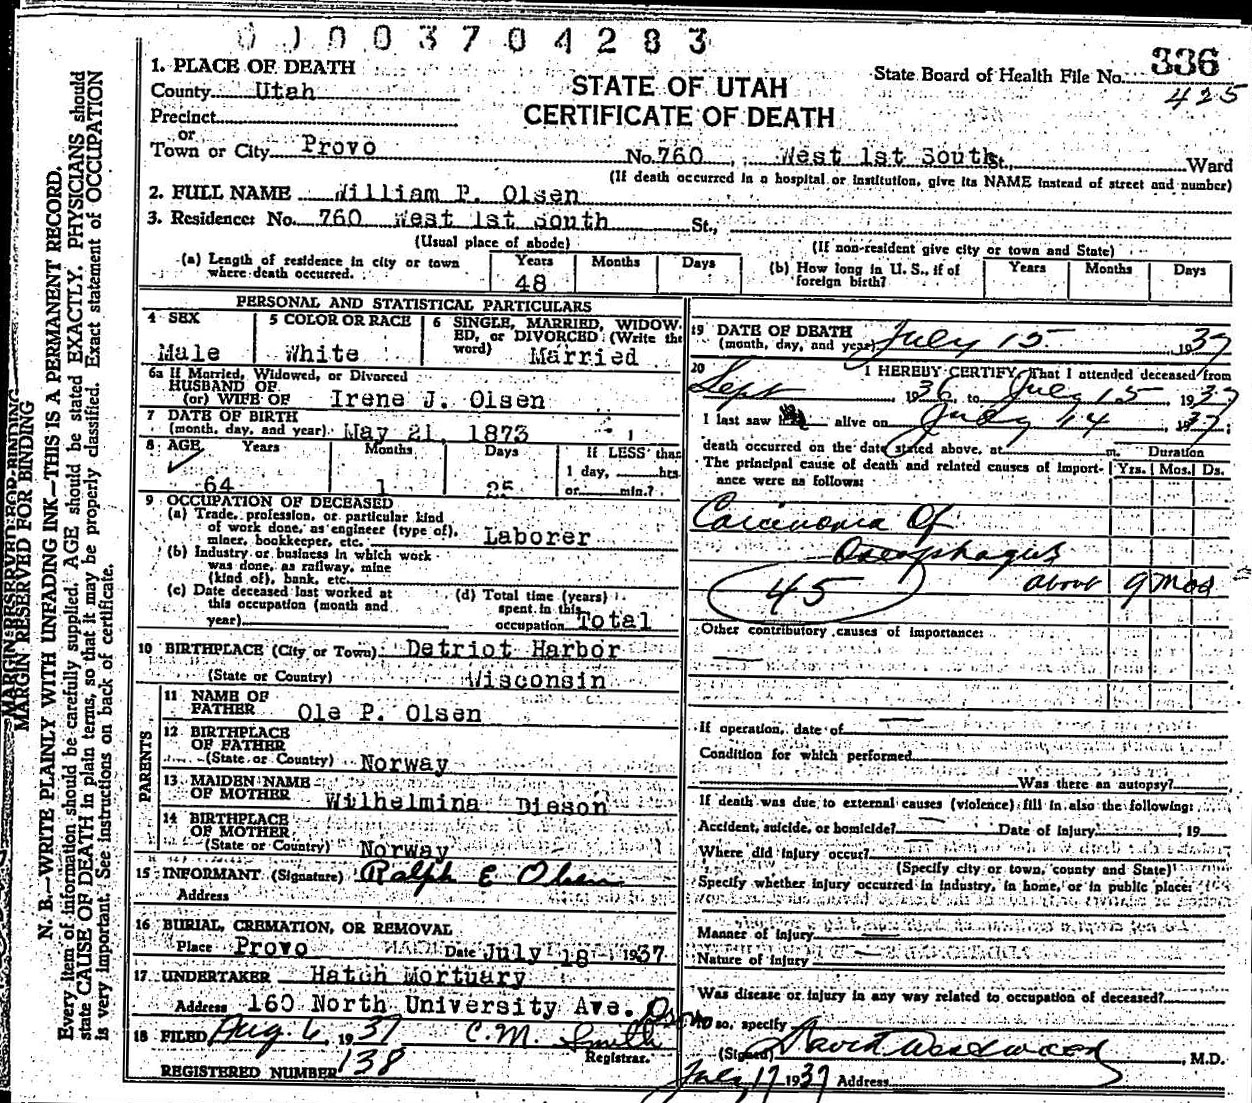 0 0 0 0 3 7 0 4 2 8 3
1. PLACE OF DEATH
State Board of Health File No. 336
County Utah
STATE OF UTAH
425
Precinct
CERTIFICATE OF DEATH
or
Town or City Provo No. 760 West 1st South St., Ward
(If death occurred in a hospital or institution, give its NAME instead of street and number)
2. FULL NAME William P. Olsen
3. Residence: No. 760 West 1st South St.,
(Usual place of abode) (If non-resident give city or town and State)
(a) Length of residence in city or town where death occurred. Years 48 Months Days
(b) How long in U. S., if of foreign birth? Years Months Days
PERSONAL AND STATISTICAL PARTICULARS
4 SEX Male
5 COLOR OR RACE White
6 SINGLE, MARRIED, WIDOWED, or DIVORCED (Write the word) Married
6a If Married, Widowed, or Divorced
HUSBAND OF
(or) WIFE OF Irene J. Olsen
7 DATE OF BIRTH
(month, day, and year) May 21, 1873
8 AGE Years 64 Months 1 Days 25 If LESS than 1 day, hrs. or min.?
9 OCCUPATION OF DECEASED
(a) Trade, profession, or particular kind
of work done, as engineer (type of),
miner, bookkeeper, etc. Laborer
(b) Industry or business in which work
was done, as railway, mine
(kind of), bank, etc.
(c) Date deceased last worked at
this occupation (month and
year)
(d) Total time (years)
spent in this
occupation Total
10 BIRTHPLACE (City or Town) Detriot Harbor
(State or Country) Wisconsin
PARENTS
11 NAME OF
FATHER Ole P. Olsen
12 BIRTHPLACE
OF FATHER
(State or Country) Norway
13 MAIDEN NAME
OF MOTHER Wilhelmina Dieson
14 BIRTHPLACE
OF MOTHER
(State or Country) Norway
15 INFORMANT (Signature) Ralph E Olsen
Address
16 BURIAL, CREMATION, OR REMOVAL
Place Provo Date July 18 1937
17 UNDERTAKER Hatch Mortuary
Address 160 North University Ave.
18 FILED Aug 6, 1937 C.M. Smith
Registrar.
REGISTERED NUMBER 138
19 DATE OF DEATH
(month, day, and year) July 15 1937
20 I HEREBY CERTIFY, That I attended deceased from
Sept 1936, to July 15, 1937
I last saw alive on July 14, 1937;
death occurred on the date stated above, at m. Duration
The principal cause of death and related causes of importance were as follows: Yrs. Mos. Ds.
Carcinoma Of
Oseophagus
45 about 9 Mos
Other contributory causes of importance:
If operation, date of
Condition for which performed
Was there an autopsy?
If death was due to external causes (violence) fill in also the following:
Accident, suicide, or homicide? Date of injury 19
Where did injury occur?
(Specify city or town, county and State)
Specify whether injury occurred in industry, in home, or in public place:
Manner of injury
Nature of injury
Was disease or injury in any way related to occupation of deceased?
so, specify
(Signed) David Westwood, M.D.
July 17 1937 Address
MARGIN RESERVED FOR BINDING
MARGIN RESERVED FOR BINDING
N. B.—WRITE PLAINLY WITH UNFADING INK—THIS IS A PERMANENT RECORD.
Every item of information should be carefully supplied. AGE should be stated EXACTLY. PHYSICIANS should
state CAUSE OF DEATH in plain terms, so that it may be properly classified. Exact statement of OCCUPATION
is very important. See instructions on back of certificate.